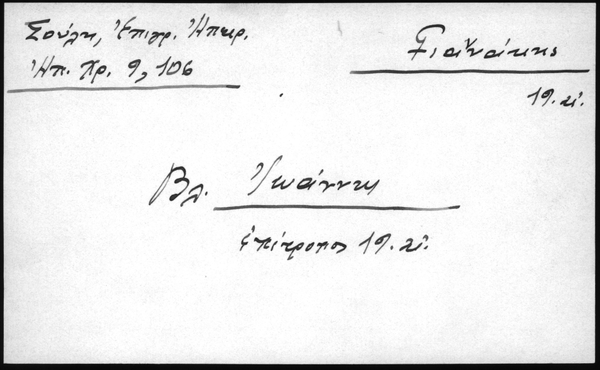 Σούλη, Ἐπιγρ. Ἠπειρ.
Ἠπ. Χρ. 9, 106
Γιαννάκης
19. αἰ.
Βλ. Ἰωάννης
ἐπίτροπος 19. αἰ.